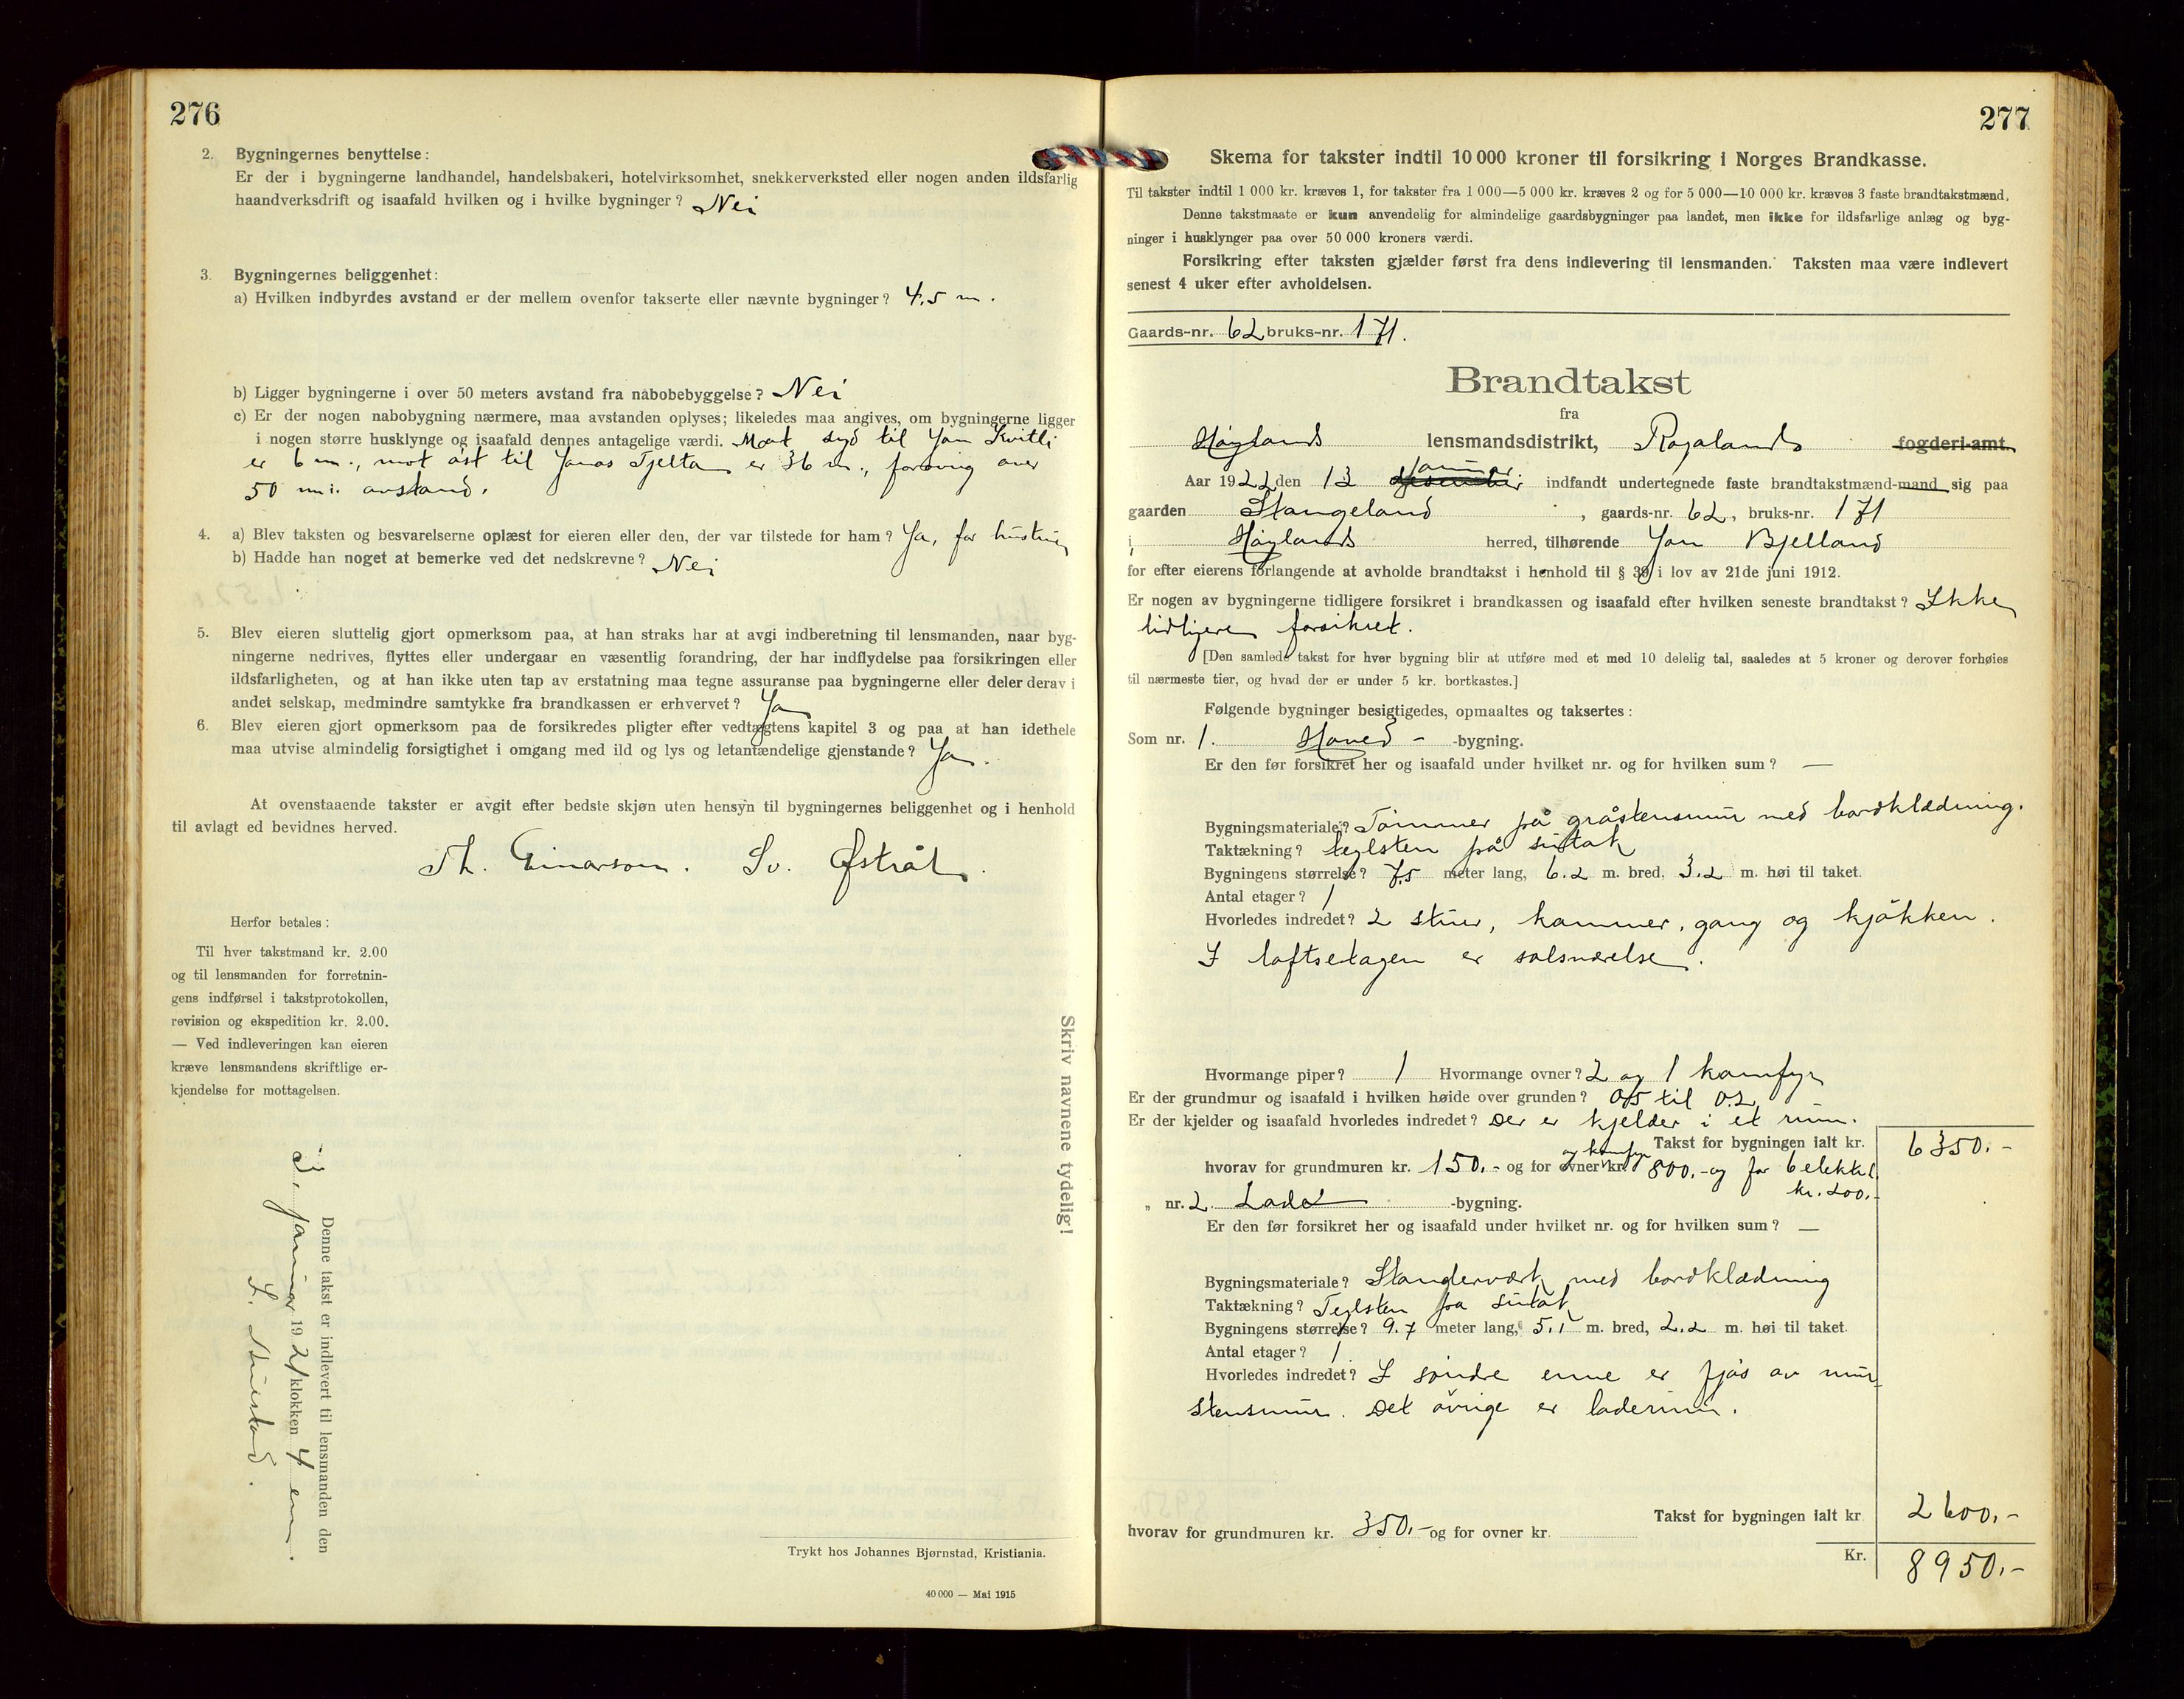 276
2. Bygningernes benyttelse:
Er der i bygningerne landhandel, handelsbakeri, hotelvirksomhet, snekkerverksted eller nogen anden ildsfarlig
haandverksdrift og isaafald hvilken og i hvilke bygninger? Nei
3. Bygningernes beliggenhet:
a) Hvilken indbyrdes avstand er der mellem ovenfor takserte eller nævnte bygninger? 4,5 m.
b) Ligger bygningerne i over 50 meters avstand fra nabobebyggelse? Nei
c) Er der nogen nabobygning nærmere, maa avstanden oplyses; likeledes maa angives, om bygningerne ligger
i nogen større husklynge og isaafald dennes antagelige værdi. Mot syd til Jan Kvitli
er 6 m., mot øst til Jonas Tjelta er 36 m., forøvrig over
50 m. avstand.
4. a) Blev taksten og besvarelserne oplæst for eieren eller den, der var tilstede for ham? Ja, for hustruen
b) Hadde han noget at bemerke ved det nedskrevne? Nei
5. Blev eieren sluttelig gjort opmerksom paa, at han straks har at avgi indberetning til lensmanden, naar byg-
ningerne nedrives, flyttes eller undergaar en væsentlig forandring, der har indflydelse paa forsikringen eller
ildsfarligheten, og at han ikke uten tap av erstatning maa tegne assuranse paa bygningerne eller deler derav i
andet selskap, medmindre samtykke fra brandkassen er erhvervet? Ja
6. Blev eieren gjort opmerksom paa de forsikredes pligter efter vedtægtens kapitel 3 og paa at han idethele
maa utvise almindelig forsigtighet i omgang med ild og lys og letantændelige gjenstande? Ja.
At ovenstaaende takster er avgit efter bedste skjøn uten hensyn til bygningernes beliggenhet og i henhold
til avlagt ed bevidnes herved.
Th. Einarson. Sv. Østråt.
Herfor betales:
Til hver takstmand kr. 2.00
og til lensmanden for forretnin-
gens indførsel i takstprotokollen,
revision og ekspedition kr. 2.00.
— Ved indleveringen kan eieren
kræve lensmandens skriftlige er-
kjendelse for mottagelsen.
Skriv navnene tydelig!
Denne takst er indlevert til lensmanden den
januar 1921 klokken 4 em.
Trykt hos Johannes Bjørnstad, Kristiania.
40 000 — Mai 1915
277
Skema for takster indtil 10 000 kroner til forsikring i Norges Brandkasse.
Til takster indtil 1 000 kr. kræves 1, for takster fra 1 000—5 000 kr. kræves 2 og for 5 000—10 000 kr. kræves 3 faste brandtakstmænd.
Denne takstmaate er kun anvendelig for almindelige gaardsbygninger paa landet, men ikke for ildsfarlige anlæg og byg-
ninger i husklynger paa over 50 000 kroners værdi.
Forsikring efter taksten gjælder først fra dens indlevering til lensmanden. Taksten maa være indlevert
senest 4 uker efter avholdelsen.
Gaards-nr. 62 bruks-nr. 171.
Brandtakst
fra
Høylands lensmandsdistrikt, Rogalands fogderi-amt.
Aar 1922 den 13 desember januar. indfandt undertegnede faste brandtakstmænd-mand sig paa
gaarden Stangeland, gaards-nr. 62, bruks-nr. 171
i Høylands herred, tilhørende Jan Bjelland
for efter eierens forlangende at avholde brandtakst i henhold til § 39 i lov av 21de juni 1912.
Er nogen av bygningerne tidligere forsikret i brandkassen og isaafald efter hvilken seneste brandtakst? Ikke
tidligere forsikret.
[Den samlede takst for hver bygning blir at utføre med et med 10 delelig tal, saaledes at 5 kroner og derover forhøies
til nærmeste tier, og hvad der er under 5 kr. bortkastes.]
Følgende bygninger besigtigedes, opmaaltes og taksertes:
Som nr. 1. Hoved- -bygning.
Er den før forsikret her og isaafald under hvilket nr. og for hvilken sum? —
Bygningsmateriale? Tømmer på gråstensmur med bordklædning.
Taktækning? teglsten på sutak
Bygningens størrelse? 7,5 meter lang, 6.2 m. bred, 3.2 m. høi til taket.
Antal etager? 1
Hvorledes indredet? 2 stuer, kammer, gang og kjøkken.
I loftsetagen er salsværelse.
Hvormange piper? 1 Hvormange ovner? 2 og 1 komfyr
Er der grundmur og isaafald i hvilken høide over grunden? 0,5 til 0.2
Er der kjelder og isaafald hvorledes indredet? Der er kjelder i et rum.
Takst for bygningen ialt kr. 6350.-
hvorav for grundmuren kr. 150.- og for ovner og komfyr kr. 800.- og for 6 elektl.
kr. 200.-
„ nr. 2. Lade -bygning.
Er den før forsikret her og isaafald under hvilket nr. og for hvilken sum? —
Bygningsmateriale? Standerværk med bordklædning
Taktækning? Teglsten på sutak
Bygningens størrelse? 9.7 meter lang, 5.1 m. bred, 2.2 m. høi til taket.
Antal etager? 1
Hvorledes indredet? I søndre enne er fjøs av mur-
stensmur. Det øvrige er laderum.
Takst for bygningen ialt kr. 2600.-
hvorav for grundmuren kr. 350.- og for ovner kr.
Kr. 8950.-